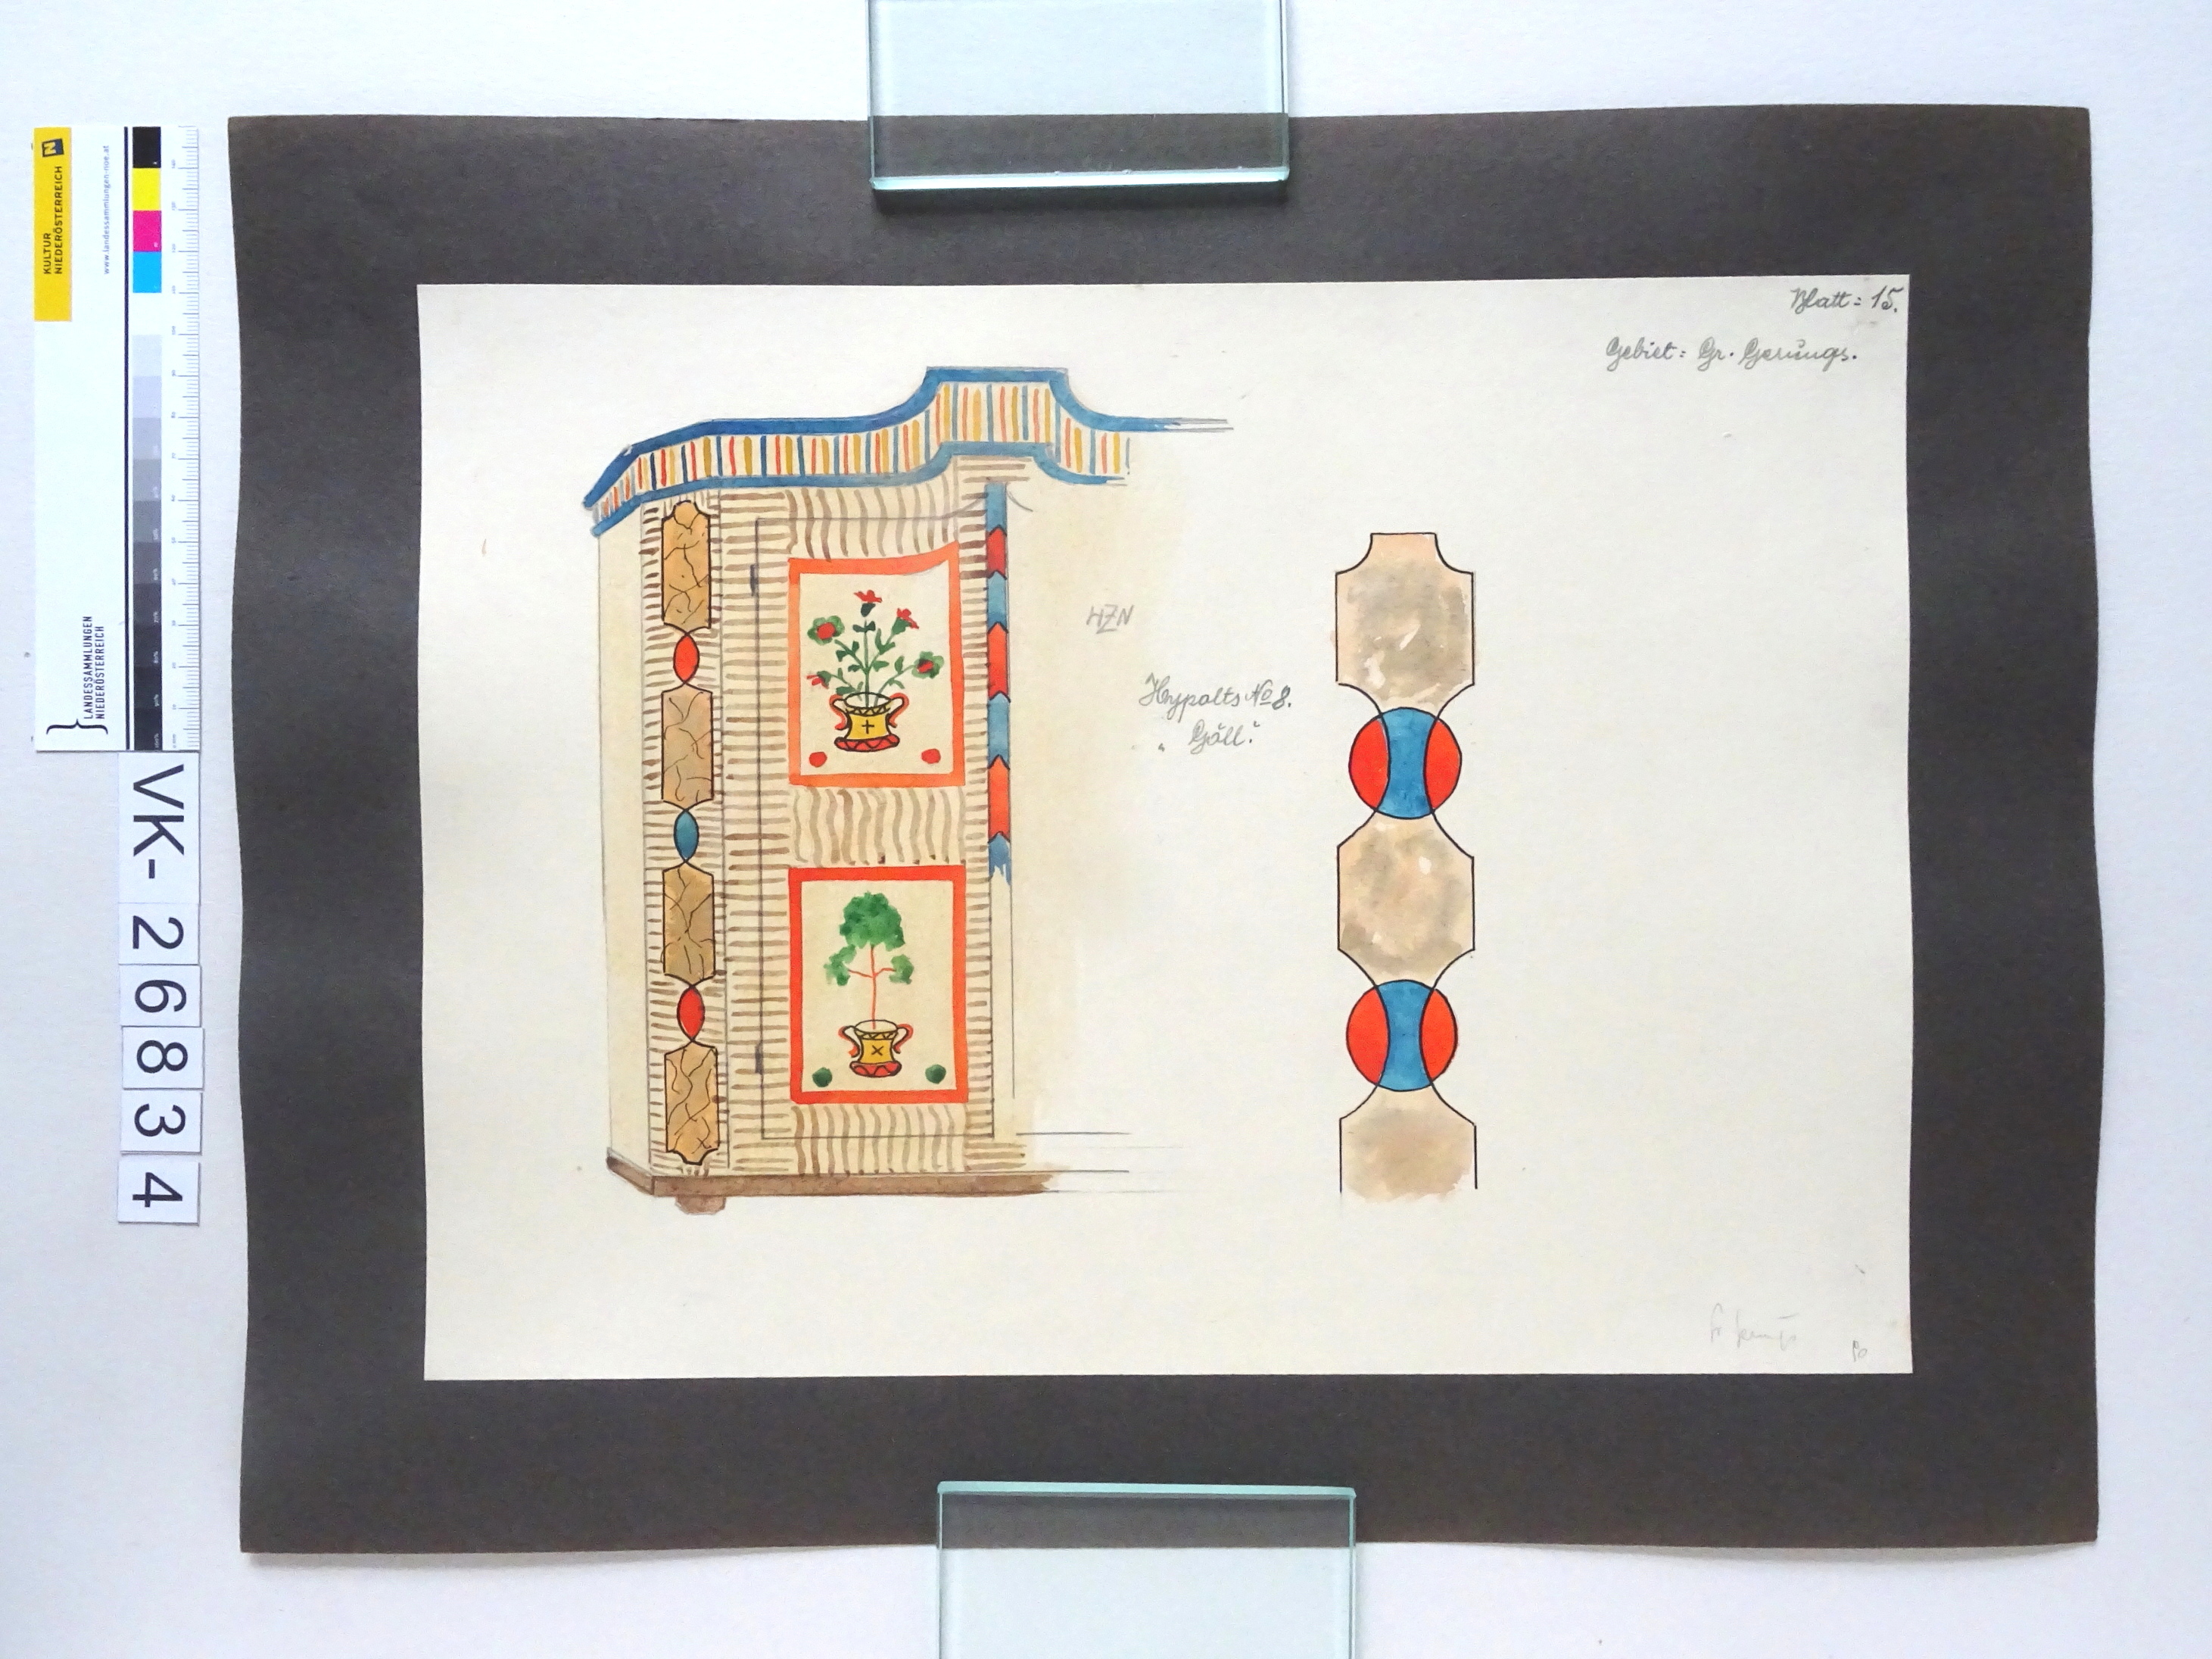 Blatt: 15.
Gebiet: Gr. Gerungs.
HZN
Heypolts No 8.
„ Göll."
KULTUR
NIEDERÖSTERREICH
www.landessammlungen-noe.at
LANDESSAMMLUNGEN
NIEDERÖSTERREICH
VK-26834